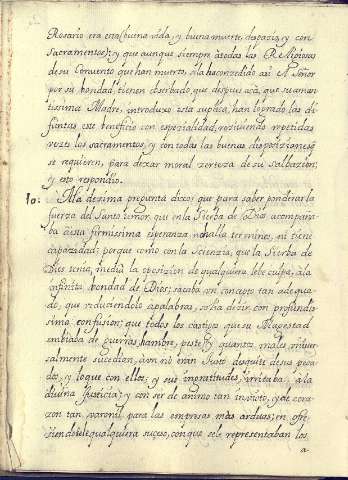 Rosario era esta (buena vida, y buena muerte de spazio, y con
Sacramentos); y que aunque siempre à todas las Religiosas
de su Convento que han muerto, se la ha conzedido así N. Señor
por su bondad; tienen observado, que despues acà, que su aman
tissima Madre, introduxo esta suplica, han logrado las di
funtas este beneficio con espezialidad, reziviendo repetidas
vezes los Sacramentos, y con todas las buenas disposiziones q
se requieren, para dexar moral zerteza de su salbazion;
y esto respondio.
10: A la dezima pregunta dixo; que para saber ponderar la
fuerza del Santo temor, que en la Sierba de Dios acompaña
ba à una firmissima esperanza, no halla terminos, ni tiene
capazidad; porque como con la Scienzia, que la Sierba de
Dios tenia, media la oposizion de qualquiera lebe culpa, à la
infinita bondad de Dios; sacaba un conzepto tan adequa
do, que reduciendolo a palabras, solia dezir con profundis
simo confusion; que todos los castigos que su Magestad
embiaba de guerras, hambre, peste, y quantos males, univer
salmente sucedian, aun no eran justo desquite de sus peca
dos, y lo que con ellos, y sus ingratitudes irritaba, à la
divina Justicia; y con ser de animo tan invicto, y de cora
zon tan varonil, para las empresas mas arduas; en ofre
ziendosele qualquiera suceso, con que se le representaban los
a-